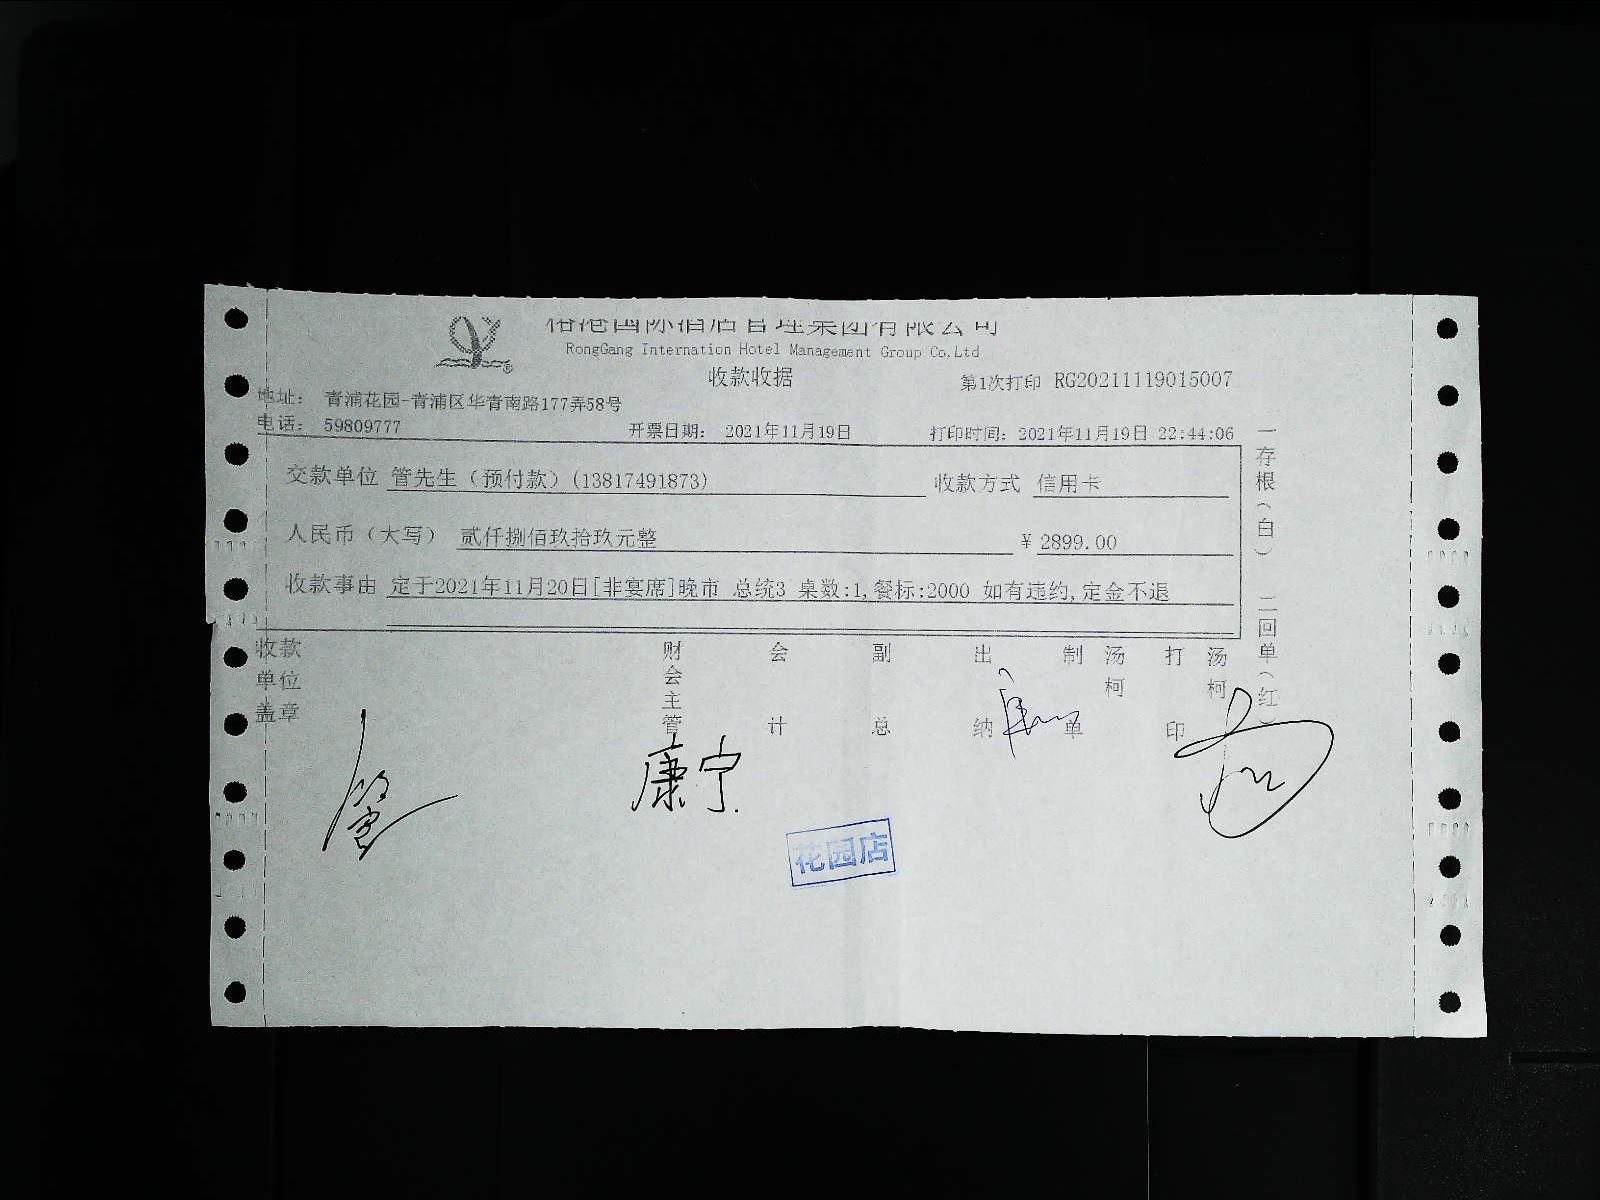 裕港国际酒店管理集团有限公司
RongGang Internation Hotel Management Group Co.Ltd
收款收据
第1次打印 RG20211119015007
地址： 青浦花园-青浦区华青南路177弄58号
电话： 59809777
开票日期： 2021年11月19日
打印时间：2021年11月19日 22:44:06
交款单位 管先生（预付款）(13817491873)
收款方式 信用卡
人民币（大写） 贰仟捌佰玖拾玖元整
¥ 2899.00
收款事由 定于2021年11月20日[非宴席]晚市 总统3 桌数:1,餐标:2000 如有违约,定金不退
一存根（白） 二回单（红）
收款单位盖章
财会主管
会计
副总
出纳
制单
汤柯
打印
汤柯
管
康宁
花园店